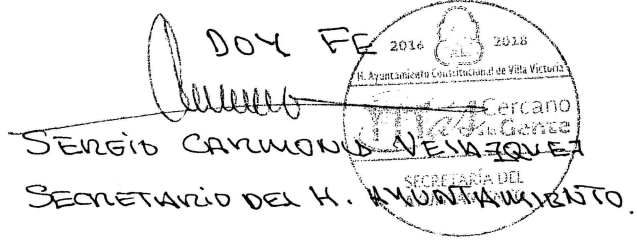 DOY FE
2016 2018
H. Ayuntamiento Constitucional de Villa Victoria
Cercano
a la Gente
SERGIO CARMONA VELAZQUEZ
SECRETARÍA DEL
SECRETARIO DEL H. AYUNTAMIENTO.